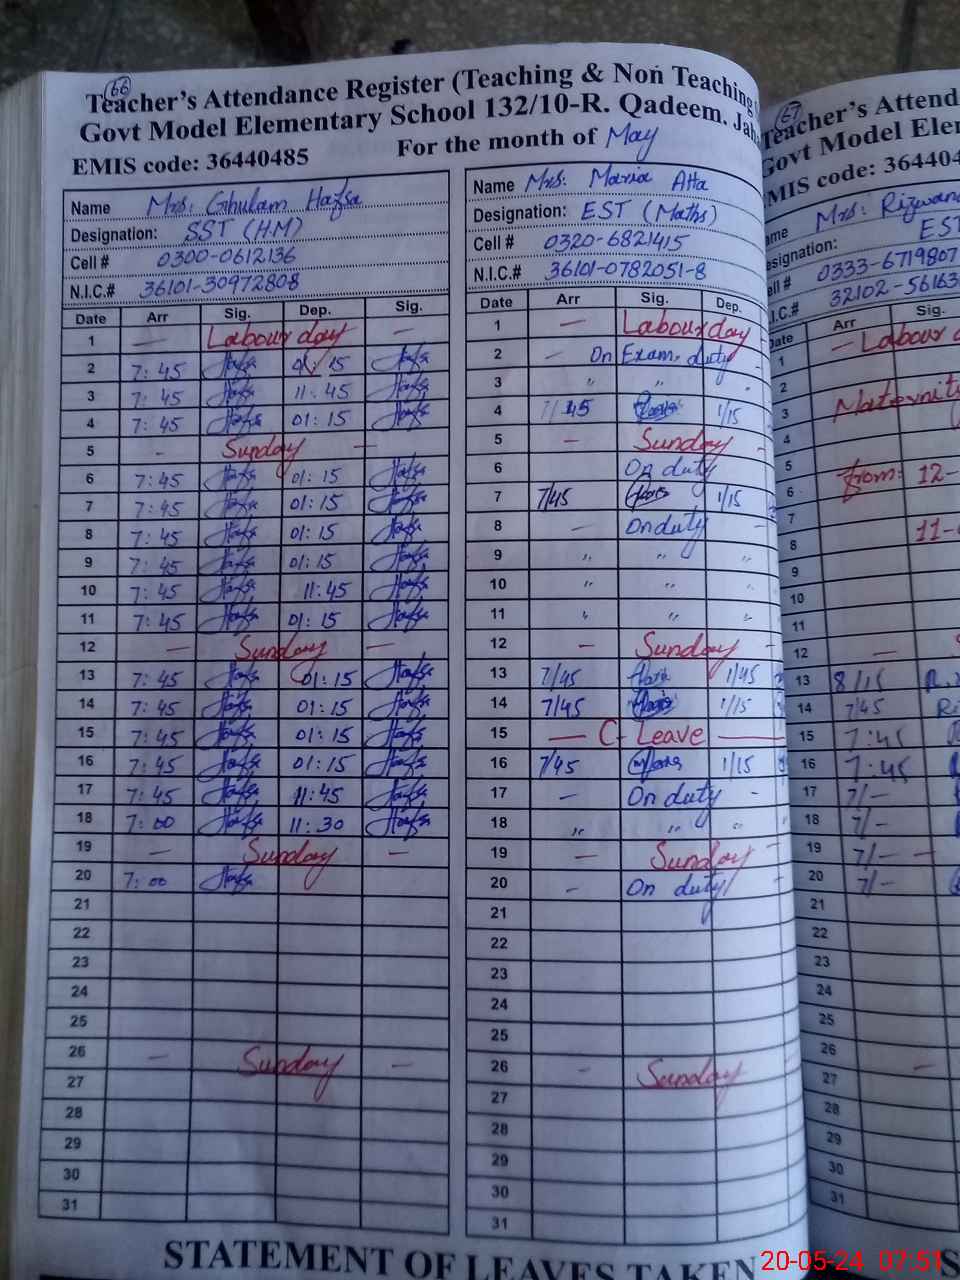 66
Teacher's Attendance Register (Teaching & Non Teaching
Govt Model Elementary School 132/10-R. Qadeem. Jah
EMIS code: 36440485 For the month of May
Name Mrs: Ghulam Hafsa
Designation: SST (H.M)
Cell # 0300-0612136
N.I.C.# 36101-30972808
Date Arr Sig. Dep. Sig.
1 — Labour day —
2 7:45 Hafsa 01:15 Hafsa
3 7:45 Hafsa 11:45 Hafsa
4 7:45 Hafsa 01:15 Hafsa
5 - Sunday —
6 7:45 Hafsa 01:15 Hafsa
7 7:45 Hafsa 01:15 Hafsa
8 7:45 Hafsa 01:15 Hafsa
9 7:45 Hafsa 01:15 Hafsa
10 7:45 Hafsa 11:45 Hafsa
11 7:45 Hafsa 01:15 Hafsa
12 — Sunday —
13 7:45 Hafsa 01:15 Hafsa
14 7:45 Hafsa 01:15 Hafsa
15 7:45 Hafsa 01:15 Hafsa
16 7:45 Hafsa 01:15 Hafsa
17 7:45 Hafsa 11:45 Hafsa
18 7:00 Hafsa 11:30 Hafsa
19 — Sunday —
20 7:00 Hafsa
21
22
23
24
25
26 — Sunday —
27
28
29
30
31
Name Mrs: Maria Atta
Designation: EST (Maths)
Cell # 0320-6821415
N.I.C.# 36101-0782051-8
Date Arr Sig. Dep.
1 — Labour day
2 — On Exam. duty -
3 " " "
4 7/45 1/15
5 — Sunday -
6 On duty
7 7/45 1/15
8 — On duty -
9 " " "
10 " " "
11 " " "
12 - Sunday -
13 7/45 1/45
14 7/45 1/15
15 — C- Leave —
16 7/45 1/15
17 - On duty -
18 " " "
19 — Sunday -
20 - On duty -
21
22
23
24
25
26 - Sunday
27
28
29
30
31
STATEMENT OF LEAVES TAKEN
67
Teacher's Attend
Govt Model Elem
EMIS code: 364404
Name Mrs: Rizwana
Designation: EST
Cell # 0333-6719807
N.I.C.# 32102-56163
Date Arr Sig.
1 — Labour
2
3 Maternity
4
5
6 from: 12-
7
8 11-
9
10
11
12 —
13 8/15
14 7/45
15 7:45
16 7:45
17 7/-
18 7/-
19 7/- —
20 7/-
21
22
23
24
25
26
27 —
28
29
30
31
20-05-24 07:51